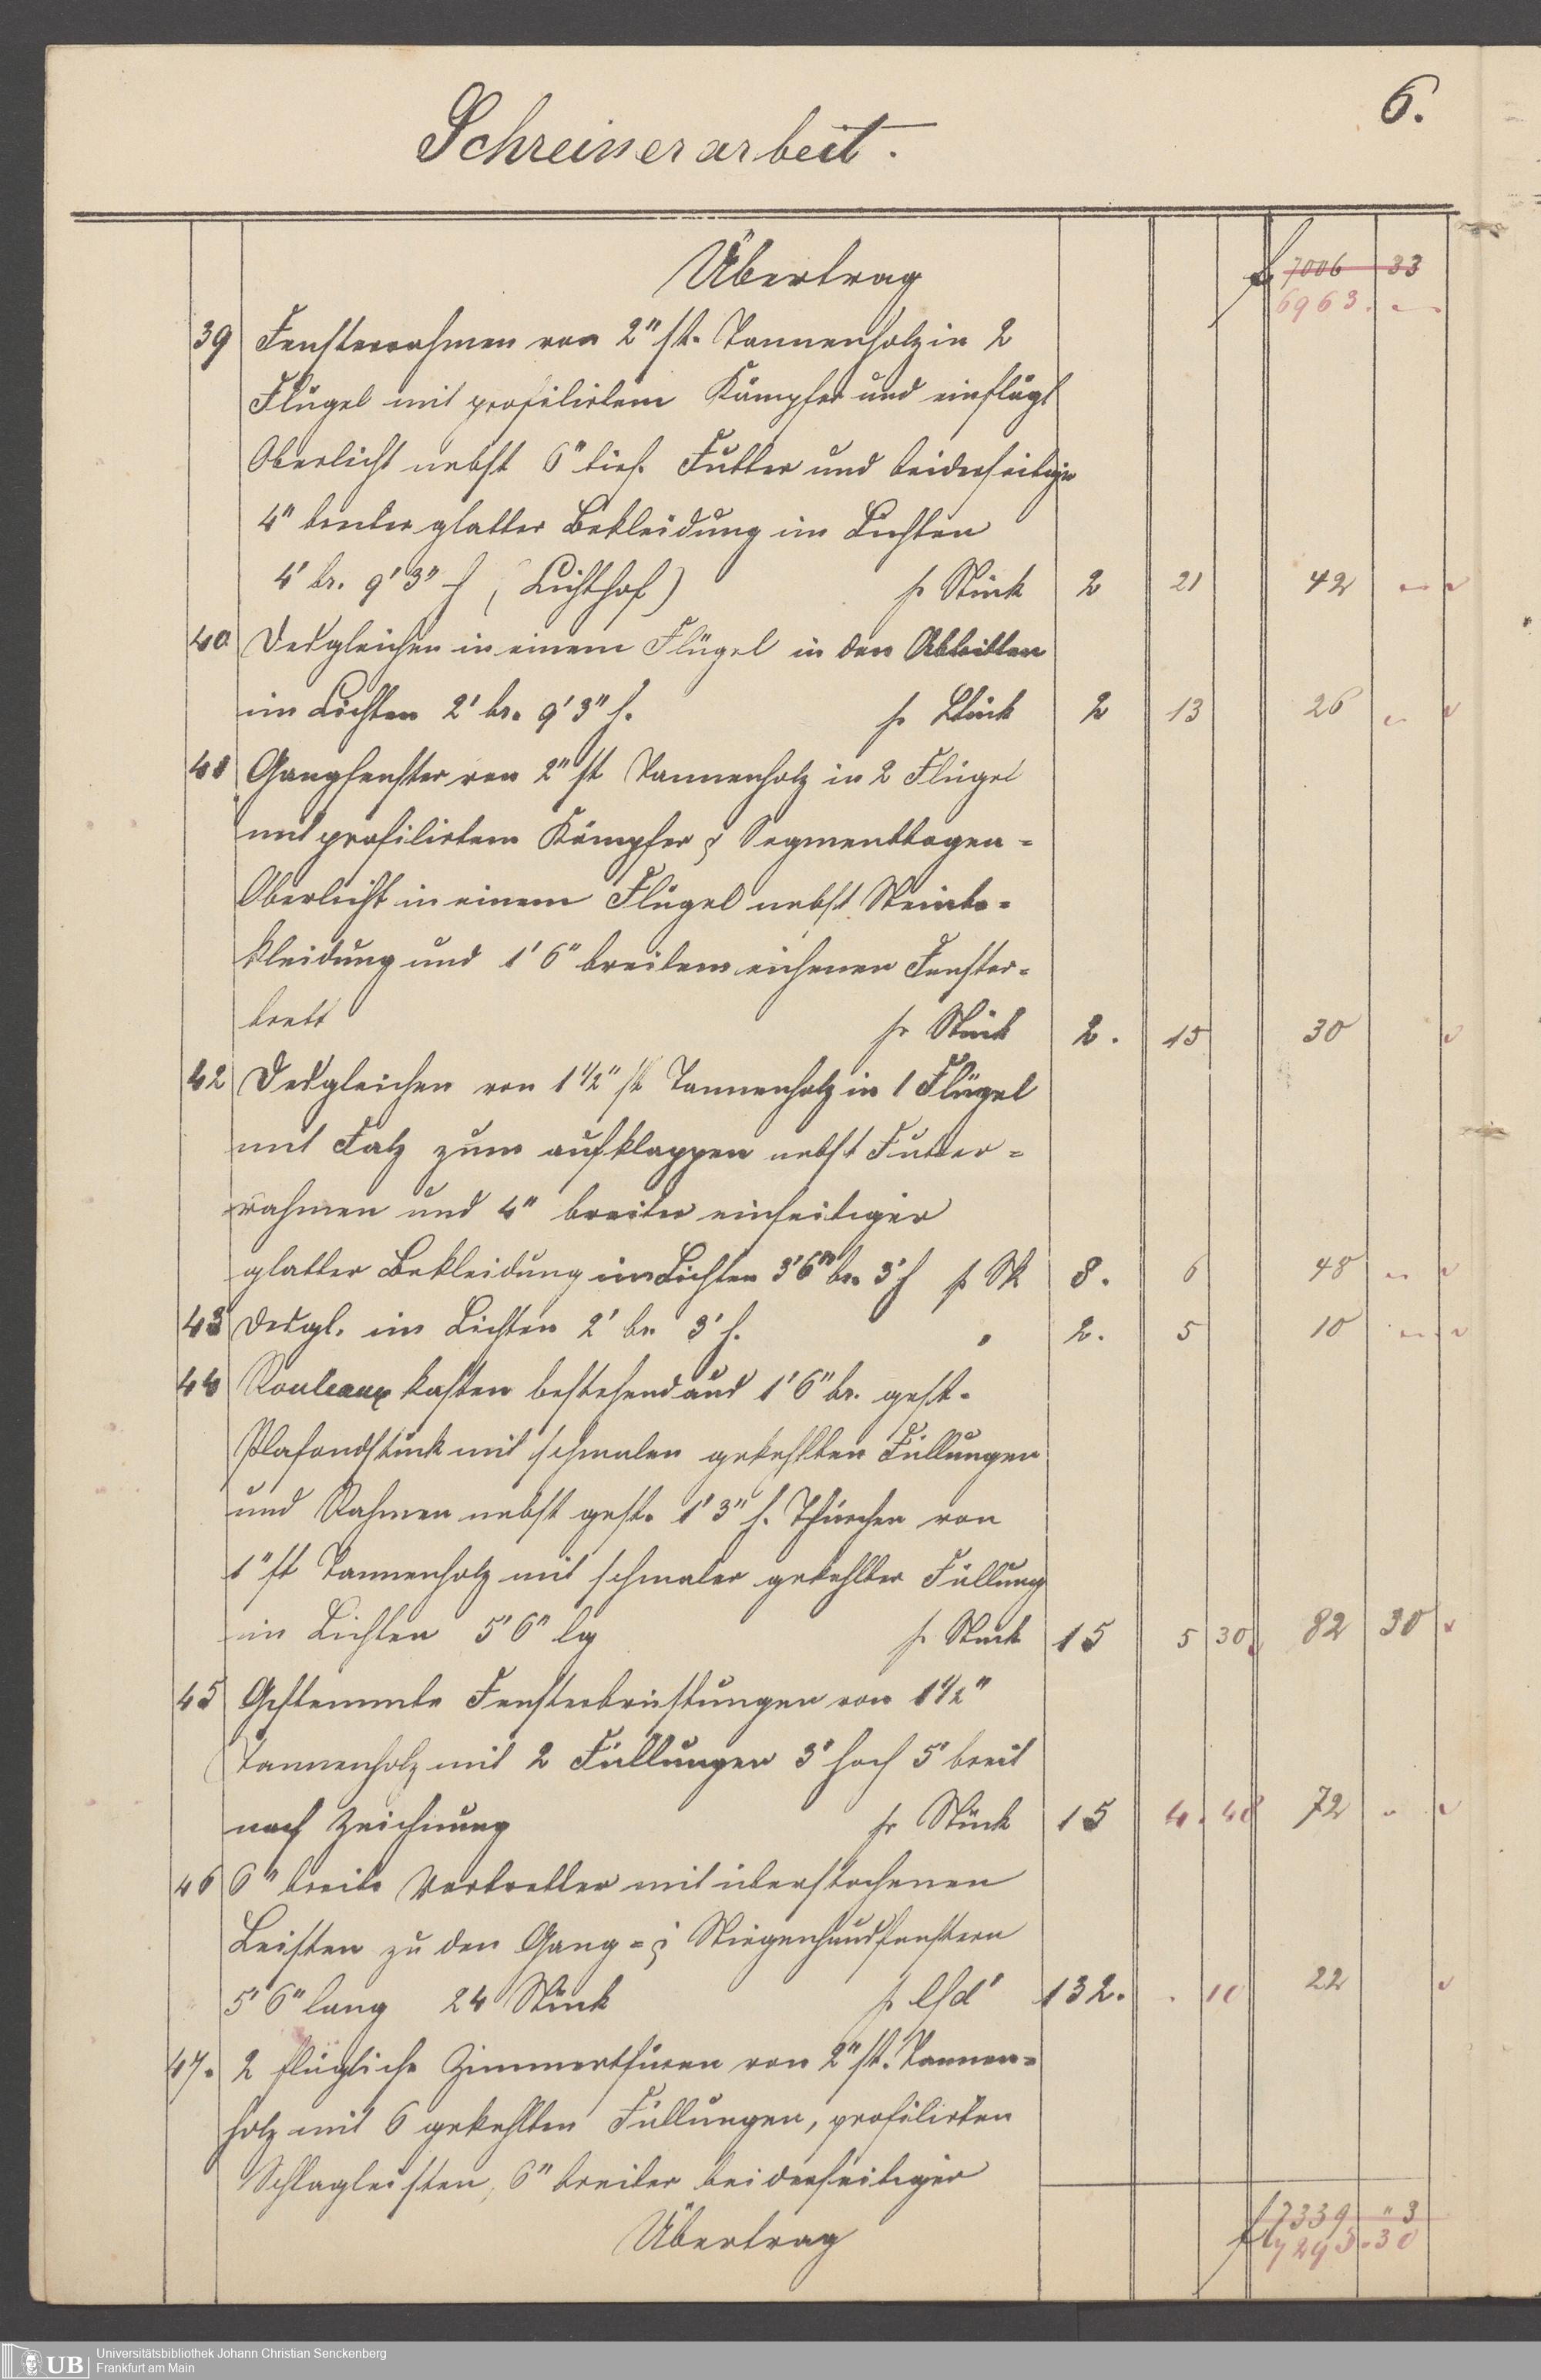 6.
Schreinerarbeit.
Übertrag f 7006 33
6963. -
39 Fensterrahmen von 2" st. Tannenholz in 2
Flügel mit profilirtem Kämpfer und einflügl
Oberlicht nebst 6" tief. Futter und beiderseitiger
4" breiter glatter Bekleidung im Lichten
4' br. 9' 3" h (Lichthof) pr Stück 2 21 42 -
40 Desgleichen in einem Flügel in den Abtritten
im Lichten 2' br. 9' 3" h. pr Stück 2 13 26 -
41 Gangfenster von 2" st Tannenholz in 2 Flügel
mit profilirtem Kämpfer & Segmentbogen-
Oberlicht in einem Flügel nebst Steinbe-
kleidung und 1' 6" breitem eichenen Fenster-
brett pr Stück 2. 15 30
42 Desgleichen von 1 1/2" st Tannenholz in 1 Flügel
mit Falz zum aufklappen nebst Futter-
rahmen und 4" breiter einseitiger
glatter Bekleidung im Lichten 3' 6" br. 3' h pr St 8. 6 48 -
43 Desgl. im Lichten 2' br 3' h. " 2. 5 10 -
44 Rouleaux kasten bestehend aus 1' 6" br. gest.
Plafondstück mit schmalen gekehlten Füllungen
und Rahmen nebst gest. 1' 3" h. Thürchen von
1" st Tannenholz mit schmaler gekehlter Füllung
im Lichten 5' 6" lg pr Stück 15 5 30 82 30
45 Gestemmte Fensterbrüstungen von 1 1/2"
Tannenholz mit 2 Füllungen 3' hoch 5' breit
nach Zeichnung pr Stück 15 4. 48 72 -
46 6" breite Vorbretter mit überstochenen
Leisten zu den Gang- & Stiegenhausfenstern
5' 6" lang 24 Stück pr lfd' 132. . 10 22
47. 2 flügliche Zimmerthüren von 2" st. Tannen-
holz mit 6 gekehlten Füllungen, profilirten
Schlagleisten, 6" breiter beiderseitiger
Übertrag f 7339 " 3
7295. 30
Universitätsbibliothek Johann Christian Senckenberg
UB Frankfurt am Main